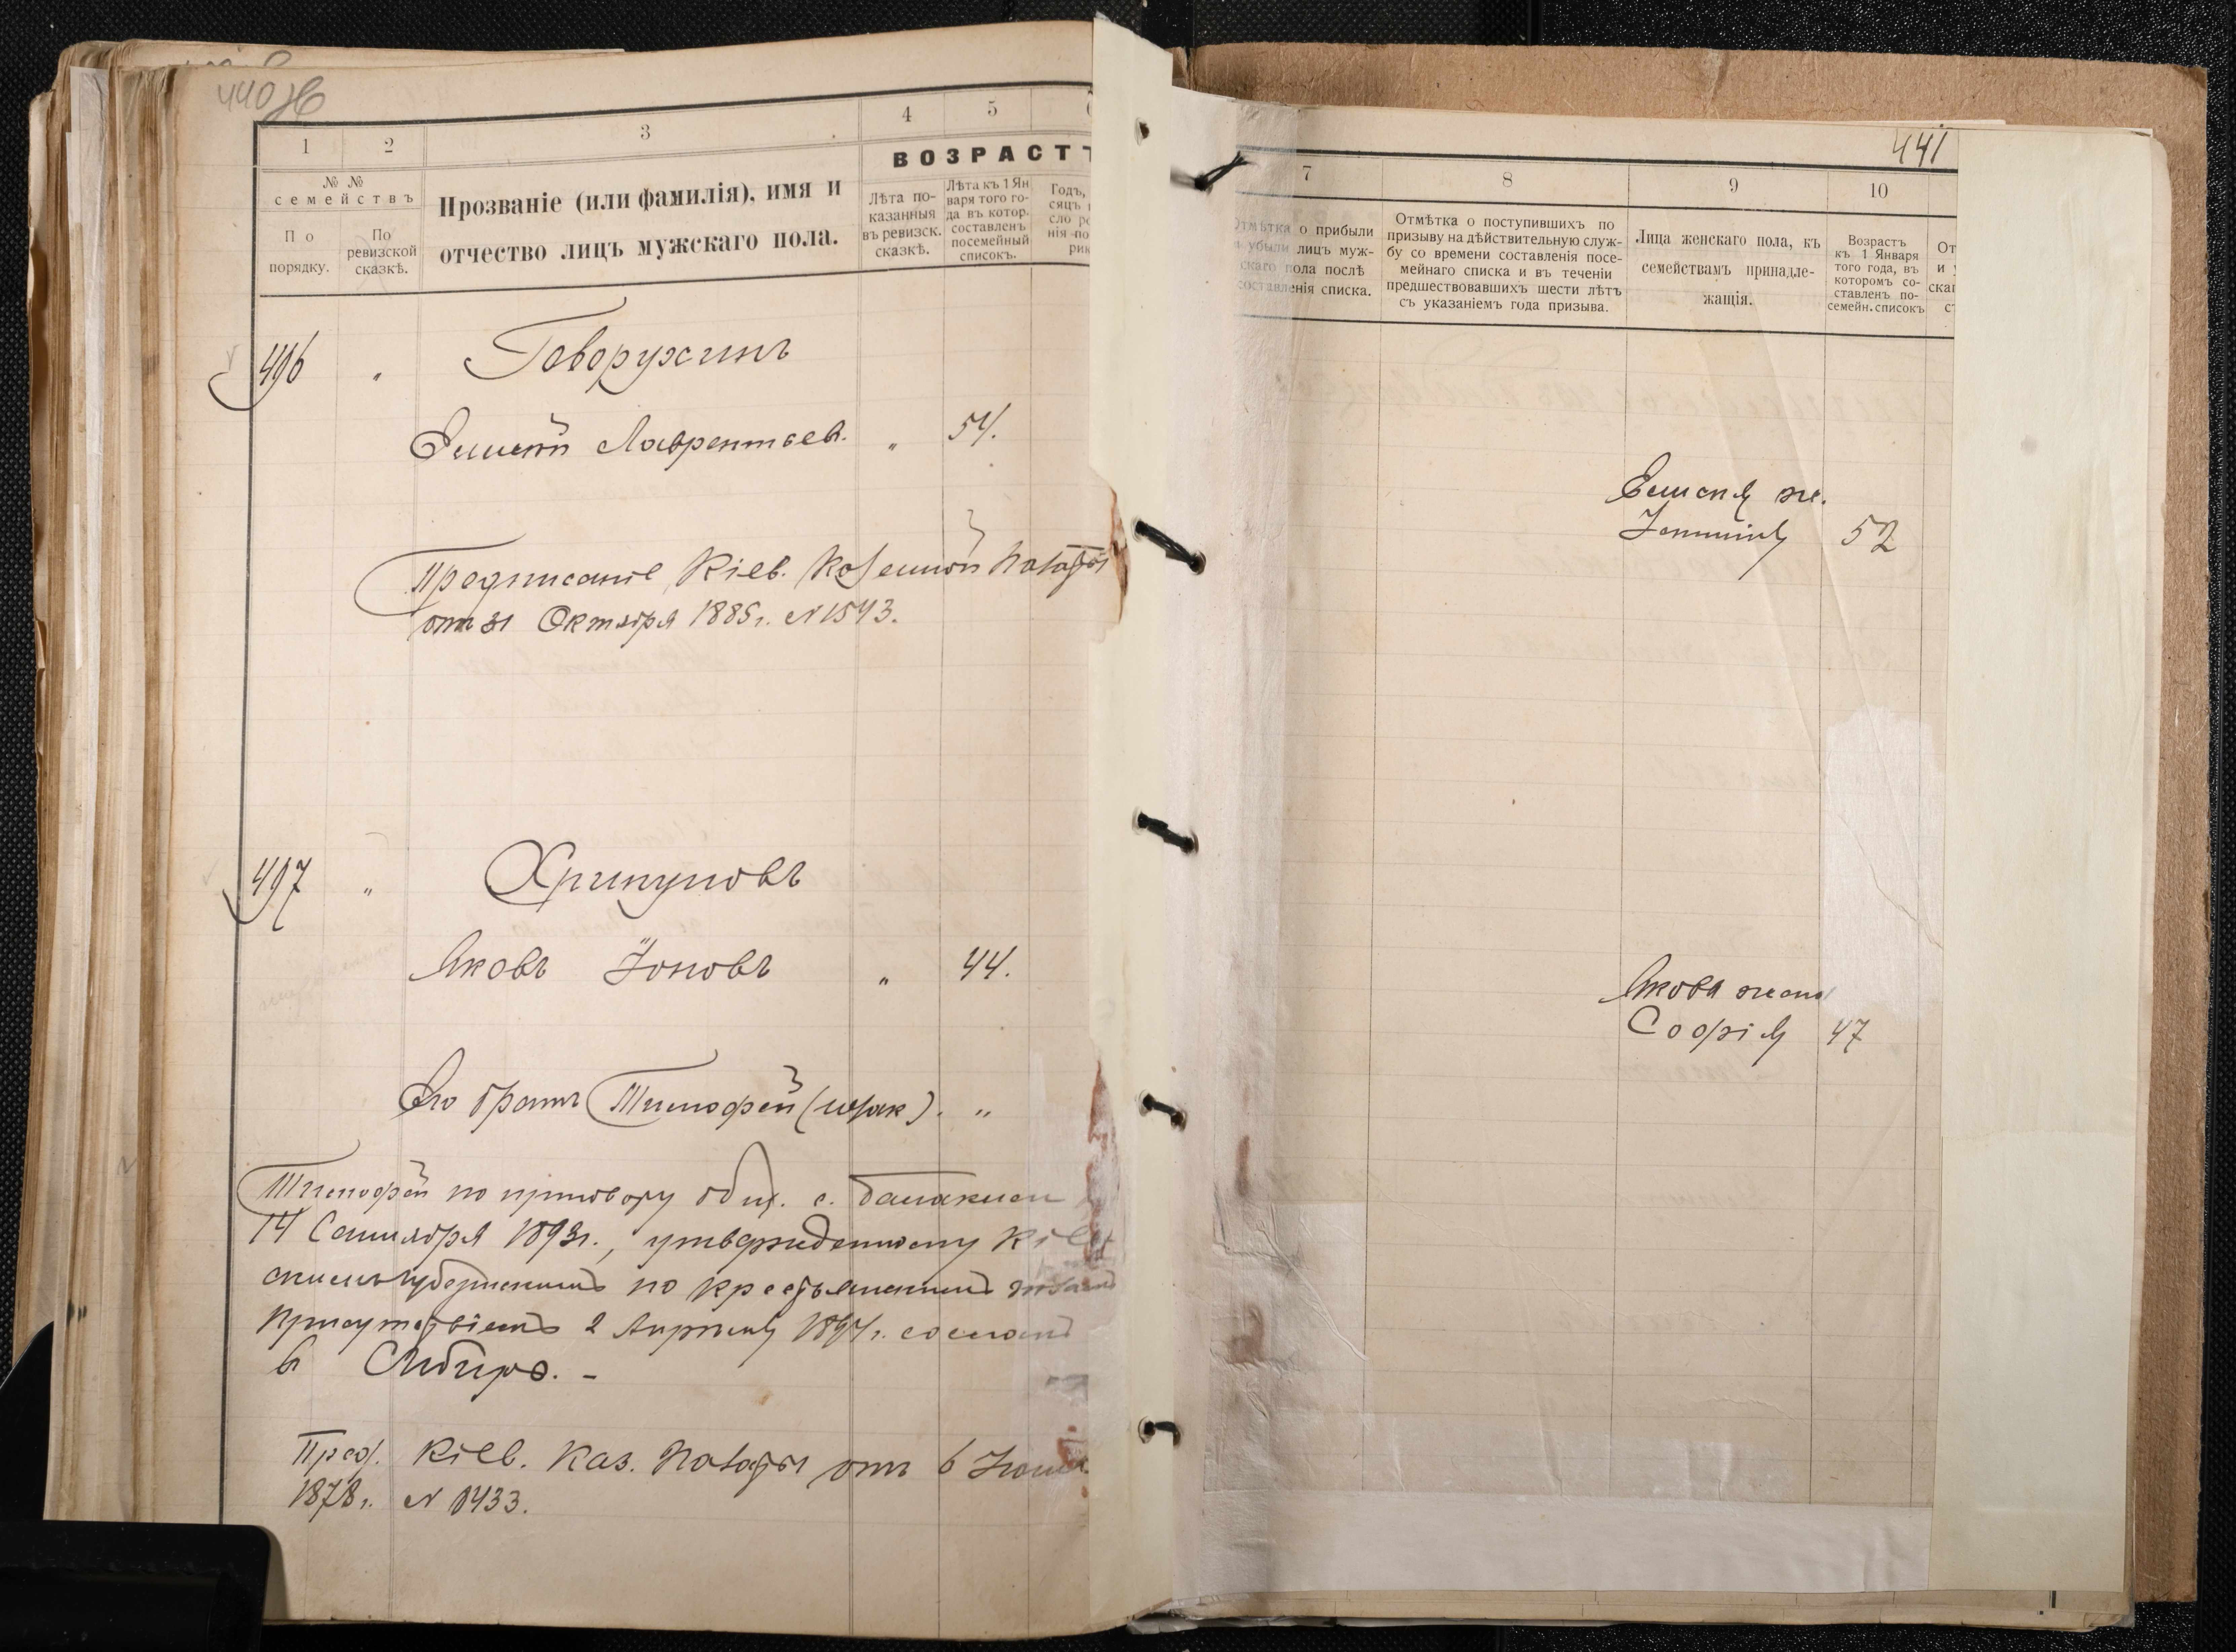 440 об
1
2
3
4
5
№ №
семействъ
По порядку.
По ревизской сказкѣ.
Прозваніе (или фамилія), имя и
отчество лицъ мужскаго пола.
ВОЗРАСТ
Лѣта по-
казанныя
въ ревизск.
сказкѣ.
Лѣта къ 1 Ян
варя того го-
да въ котор.
составленъ
посемейный
списокъ.
Годъ,
496 " Говорухинъ
Лаврентьев. " 54.
Предписаніе Кіев. Казенной Палаты
от 31 Октября 1885г. N 1543.
497 " Хрипуновъ
Яковъ Іоновъ " 44.
Его братъ Тимофей ". "
Тимофей по приговору общ. с.
14 Сентября 1893г., утвержденному Кіев
скимъ Губернскимъ по крестьянскимъ
Присутствіемъ 2 Апрѣля 1894г. сосланъ
в Сибирь. -
Пред. Кіев. Каз. Палаты отъ 6
1878г. N 1433.
441
7
8
9
10
Отмѣтка о прибыли
и убыли лицъ муж-
скаго пола послѣ
составленія списка.
Отмѣтка о поступившихъ по
призыву на дѣйствительную служ-
бу со времени составленія посе-
мейнаго списка и въ теченіи
предшествовавшихъ шести лѣтъ
съ указаніемъ года призыва.
Лица женскаго пола, къ
семействамъ принадле-
жащія.
Возрастъ
къ 1 Января
того года, въ
которомъ со-
ставленъ по-
семейн. списокъ
От
и
скаг
ст
ж.
52
Якова жена
Софія 47